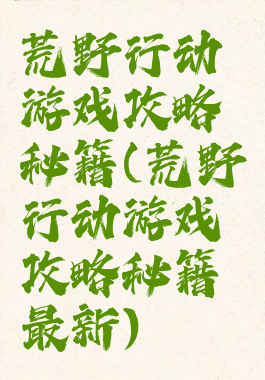 荒野行动
游戏攻略
秘籍(荒野
行动游戏
攻略秘籍
最新)